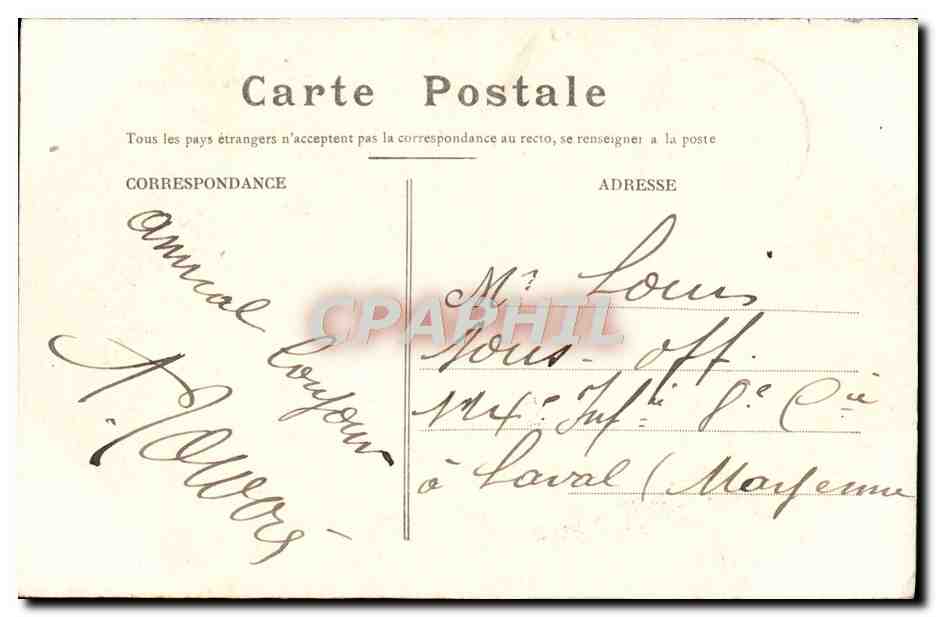 Carte Postale
Tous les pays étrangers n'acceptent pas la correspondance au recto, se renseigner a la poste
CORRESPONDANCE
amical
bonjour
ADRESSE
Mr Louis
Sous-off.
124e Infie 8e Cie
à Laval (Mayenne
CPAPHIL